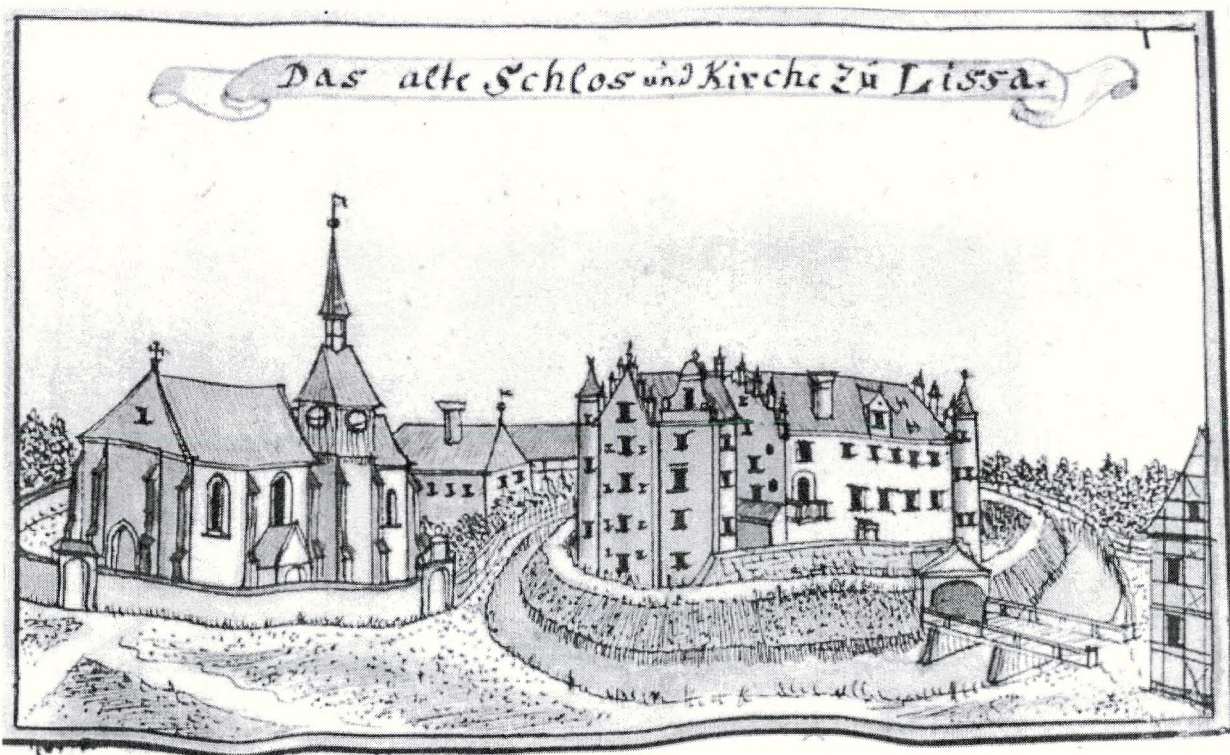 Das alte Schlos und Kirche zu Lissa.
1